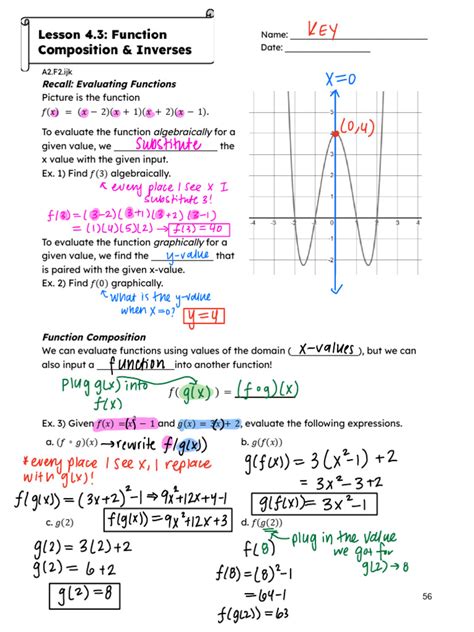 Lesson 4.3: Function
Composition & Inverses
Name: KEY
Date:
A2.F2.ijk
Recall: Evaluating Functions
Picture is the function
f(x) = (x − 2)(x + 1)(x + 2)(x − 1).
To evaluate the function algebraically for a
given value, we substitute the
x value with the given input.
Ex. 1) Find f(3) algebraically.
every place I see x I
substitute 3!
f(3)=(3-2)(3+1)(3+2)(3-1)
=(1)(4)(5)(2) → f(3)=40
To evaluate the function graphically for a
given value, we find the y-value that
is paired with the given x-value.
Ex. 2) Find f(0) graphically.
what is the y-value
when x=0? y=4
x=0
(0,4)
5
-4 -3 -2 -1 1 2 3 4 5
-2
Function Composition
We can evaluate functions using values of the domain (x-values), but we can
also input a function into another function!
plug g(x) into
f(x)
f( g(x) ) = (f∘g)(x)
Ex. 3) Given f(x) = (x)² − 1 and g(x) = 3(x) + 2, evaluate the following expressions.
a. (f ∘ g)(x) → rewrite f(g(x))
*every place I see x, I replace
with g(x)!
f(g(x)) = (3x+2)²-1 → 9x²+12x+4-1
f(g(x))=9x²+12x+3
b. g(f(x))
g(f(x)) = 3(x²-1)+2
= 3x²-3+2
g(f(x))= 3x²-1
c. g(2)
g(2) = 3(2)+2
g(2) = 6+2
g(2)=8
d. f(g(2))
plug in the value
we got for
g(2) → 8
f(8)
f(8)=(8)²-1
=64-1
f(g(2))=63
56